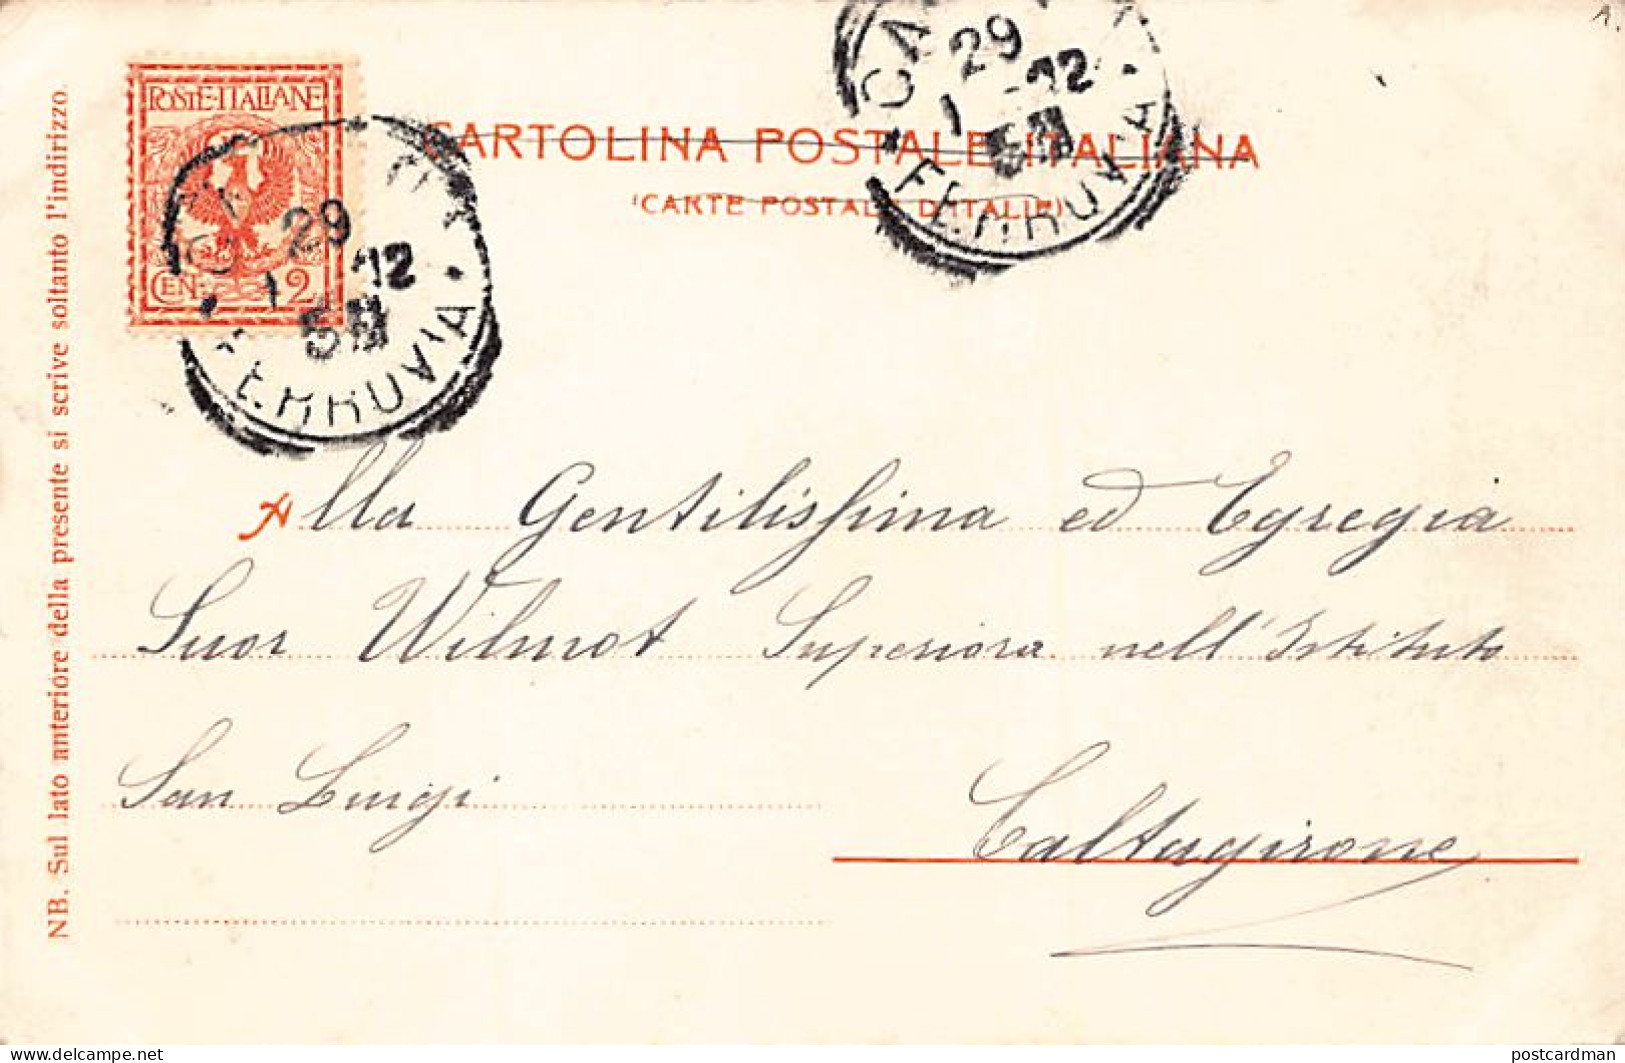 POSTE·ITALIANE
CEN. 2
29
12
FERROVIA
CARTOLINA POSTALE ITALIANA
(CARTE POSTALE D'ITALIE)
29
1 12
FERROVIA
NB. Sul lato anteriore della presente si scrive soltanto l'indirizzo.
Alla Gentilissima ed Egregia
Suor Wilmot Superiora nell'Istituto
San Luigi
Caltagirone
delcampe.net
postcardman